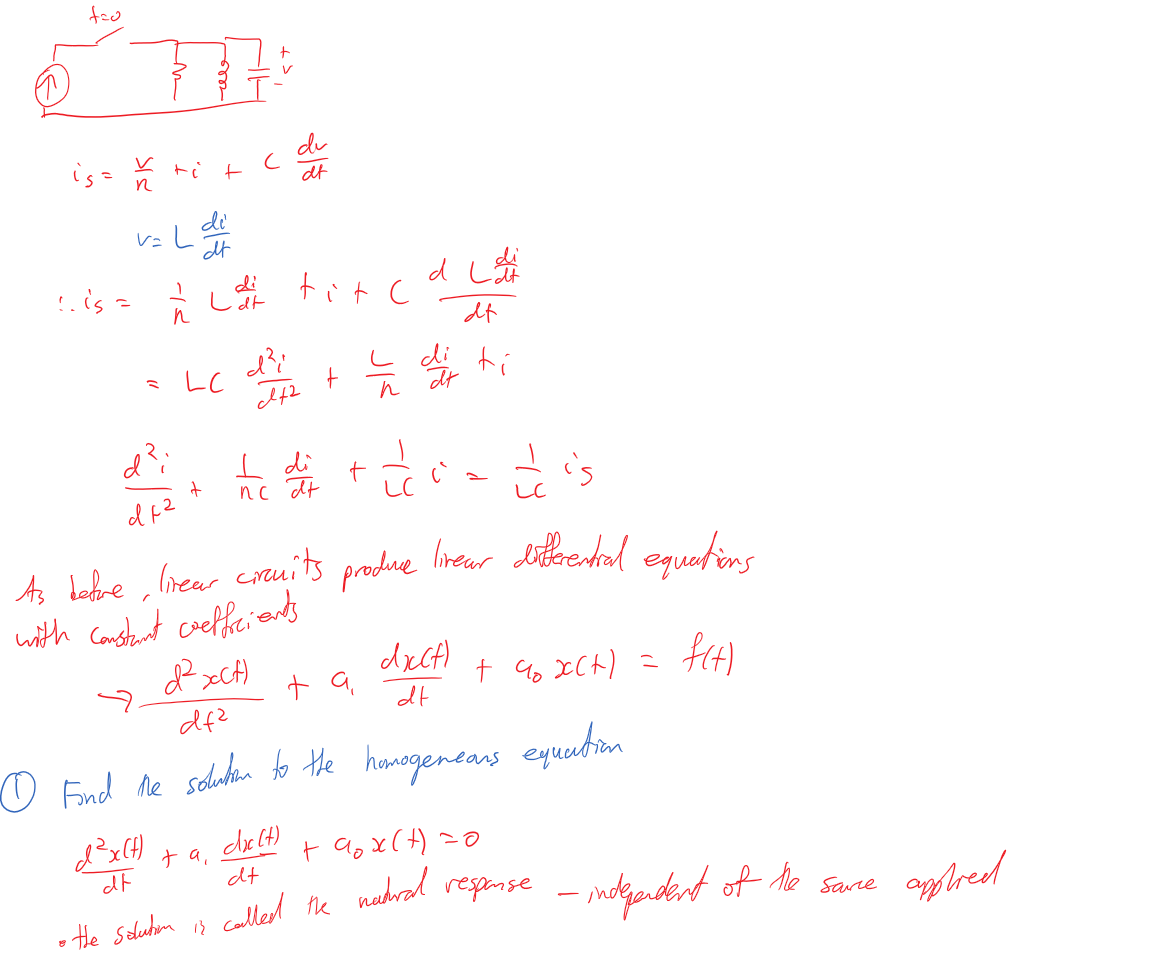 t=0
+
v
-
is = v/n + i + C dv/dt
v = L di/dt
∴ is = 1/n L di/dt + i + C d L di/dt / dt
= LC d²i/dt² + L/n di/dt + i
d²i/dt² + 1/nC di/dt + 1/LC i = 1/LC is
As before, linear circuits produce linear differential equations
with constant coefficients
→ d²x(t)/dt² + a₁ dx(t)/dt + a₀ x(t) = f(t)
① Find the solution to the homogeneous equation
d²x(t)/dt + a₁ dx(t)/dt + a₀ x(t) = 0
• the solution is called the natural response – independent of the source applied